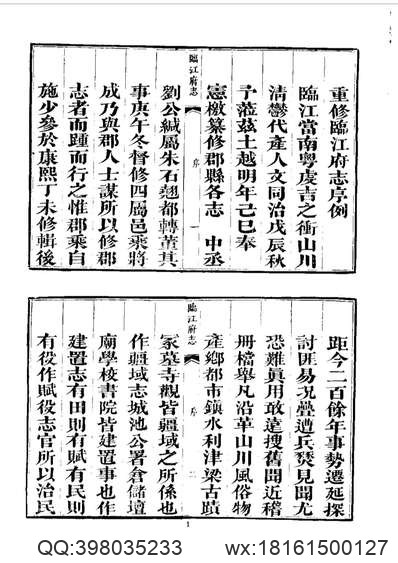 重修臨江府志序例
臨江當南粵虔吉之衝山川
清鬱代產人文同治戊辰秋
予蒞茲土越明年己巳奉
憲檄纂修郡縣各志　中丞
劉公緘屬朱石翹都轉董其
事庚午冬督修四屬邑乘將
成乃與郡人士謀所以修郡
志者而踵而行之惟郡乘自
施少參於康熙丁未修輯後
臨江府志
序
一
距今二百餘年事勢遷延探
討匪易況疊遭兵燹見聞尤
恐難眞用敢遠搜舊聞近稽
冊檔舉凡沿革山川風俗物
產鄉都市鎮水利津梁古蹟
冢墓寺觀皆疆域之所係也
作疆域志城池公署倉儲壇
廟學校書院皆建置事也作
建置志有田則有賦有民則
有役作賦役志官所以治民
臨江府志
序
二
1
QQ:398035233
wx:18161500127